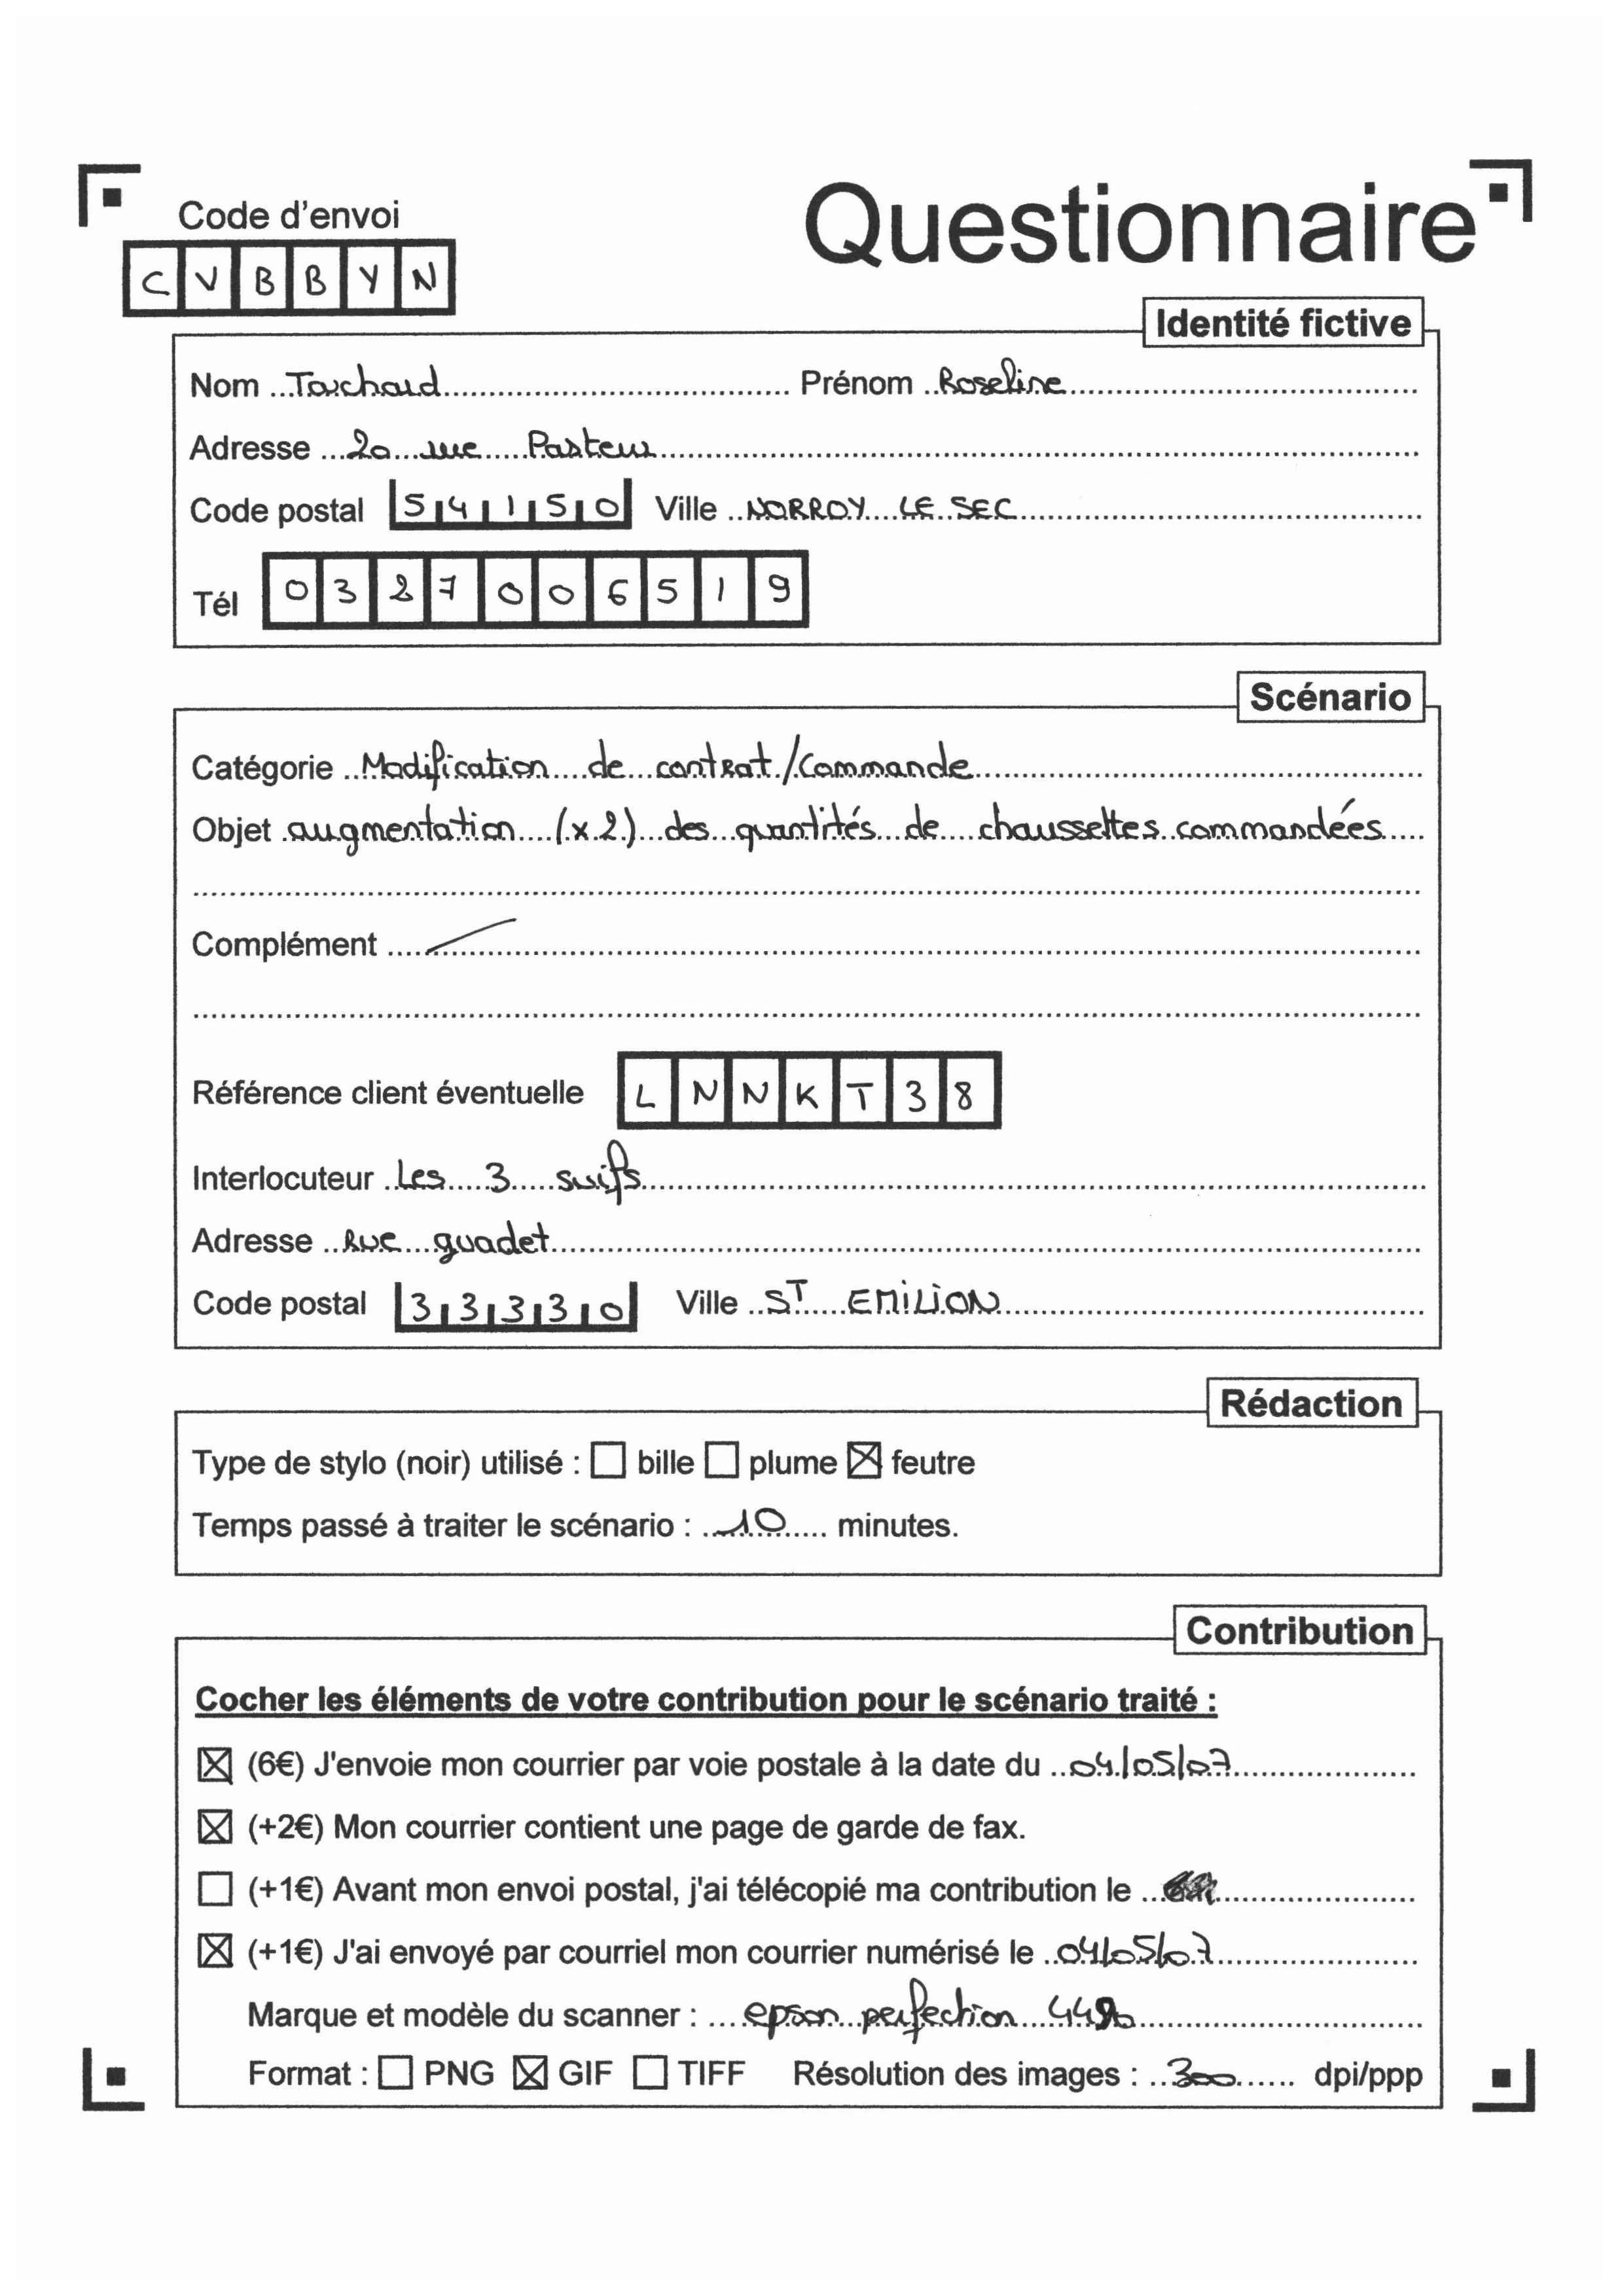 Code d'envoi
Questionnaire
C V B B Y N
Identité fictive
Nom Touchard Prénom Roseline
Adresse 20 rue Pasteur
Code postal 54150 Ville NORROY LE SEC
Tél 0327006519
Scénario
Catégorie Modification de contrat/Commande
Objet augmentation (x2) des quantités de chaussettes commandées
Complément
Référence client éventuelle L N N K T 3 8
Interlocuteur Les 3 suifs
Adresse Rue guadet
Code postal 33330 Ville ST EMILION
Rédaction
Type de stylo (noir) utilisé : bille plume feutre
Temps passé à traiter le scénario : 10 minutes.
Contribution
Cocher les éléments de votre contribution pour le scénario traité :
(6€) J'envoie mon courrier par voie postale à la date du 04/05/07
(+2€) Mon courrier contient une page de garde de fax.
(+1€) Avant mon envoi postal, j'ai télécopié ma contribution le
(+1€) J'ai envoyé par courriel mon courrier numérisé le 04/05/07
Marque et modèle du scanner : epson perfection 4490
Format : PNG GIF TIFF Résolution des images : 300 dpi/ppp